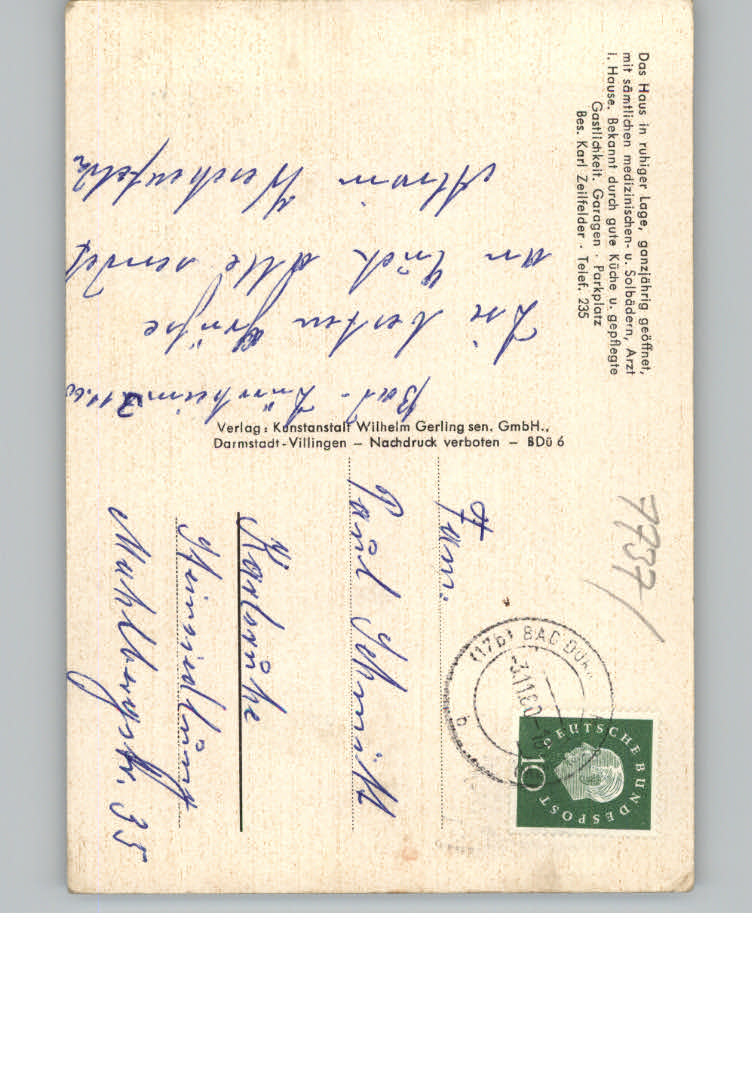 Das Haus in ruhiger Lage, ganzjährig geöffnet,
mit sämtlichen medizinischen- u. Solbädern, Arzt
i. Hause. Bekannt durch gute Küche u. gepflegte
Gastlichkeit. Garagen · Parkplatz
Bes. Karl Zeilfelder · Telef. 235
Bad-Dürrheim 2.11.60
Die besten Grüße
an Euch alle sendet
Armin
Verlag: Kunstanstalt Wilhelm Gerling sen. GmbH.,
Darmstadt-Villingen – Nachdruck verboten – BDü 6
7737/
(17b) BAD DÜR
-3.11.60-
b
DEUTSCHE BUNDESPOST
10
Fam.
Paul Schmitt
Karlsruhe
Heimsiedlung
Mahlbergstr. 35